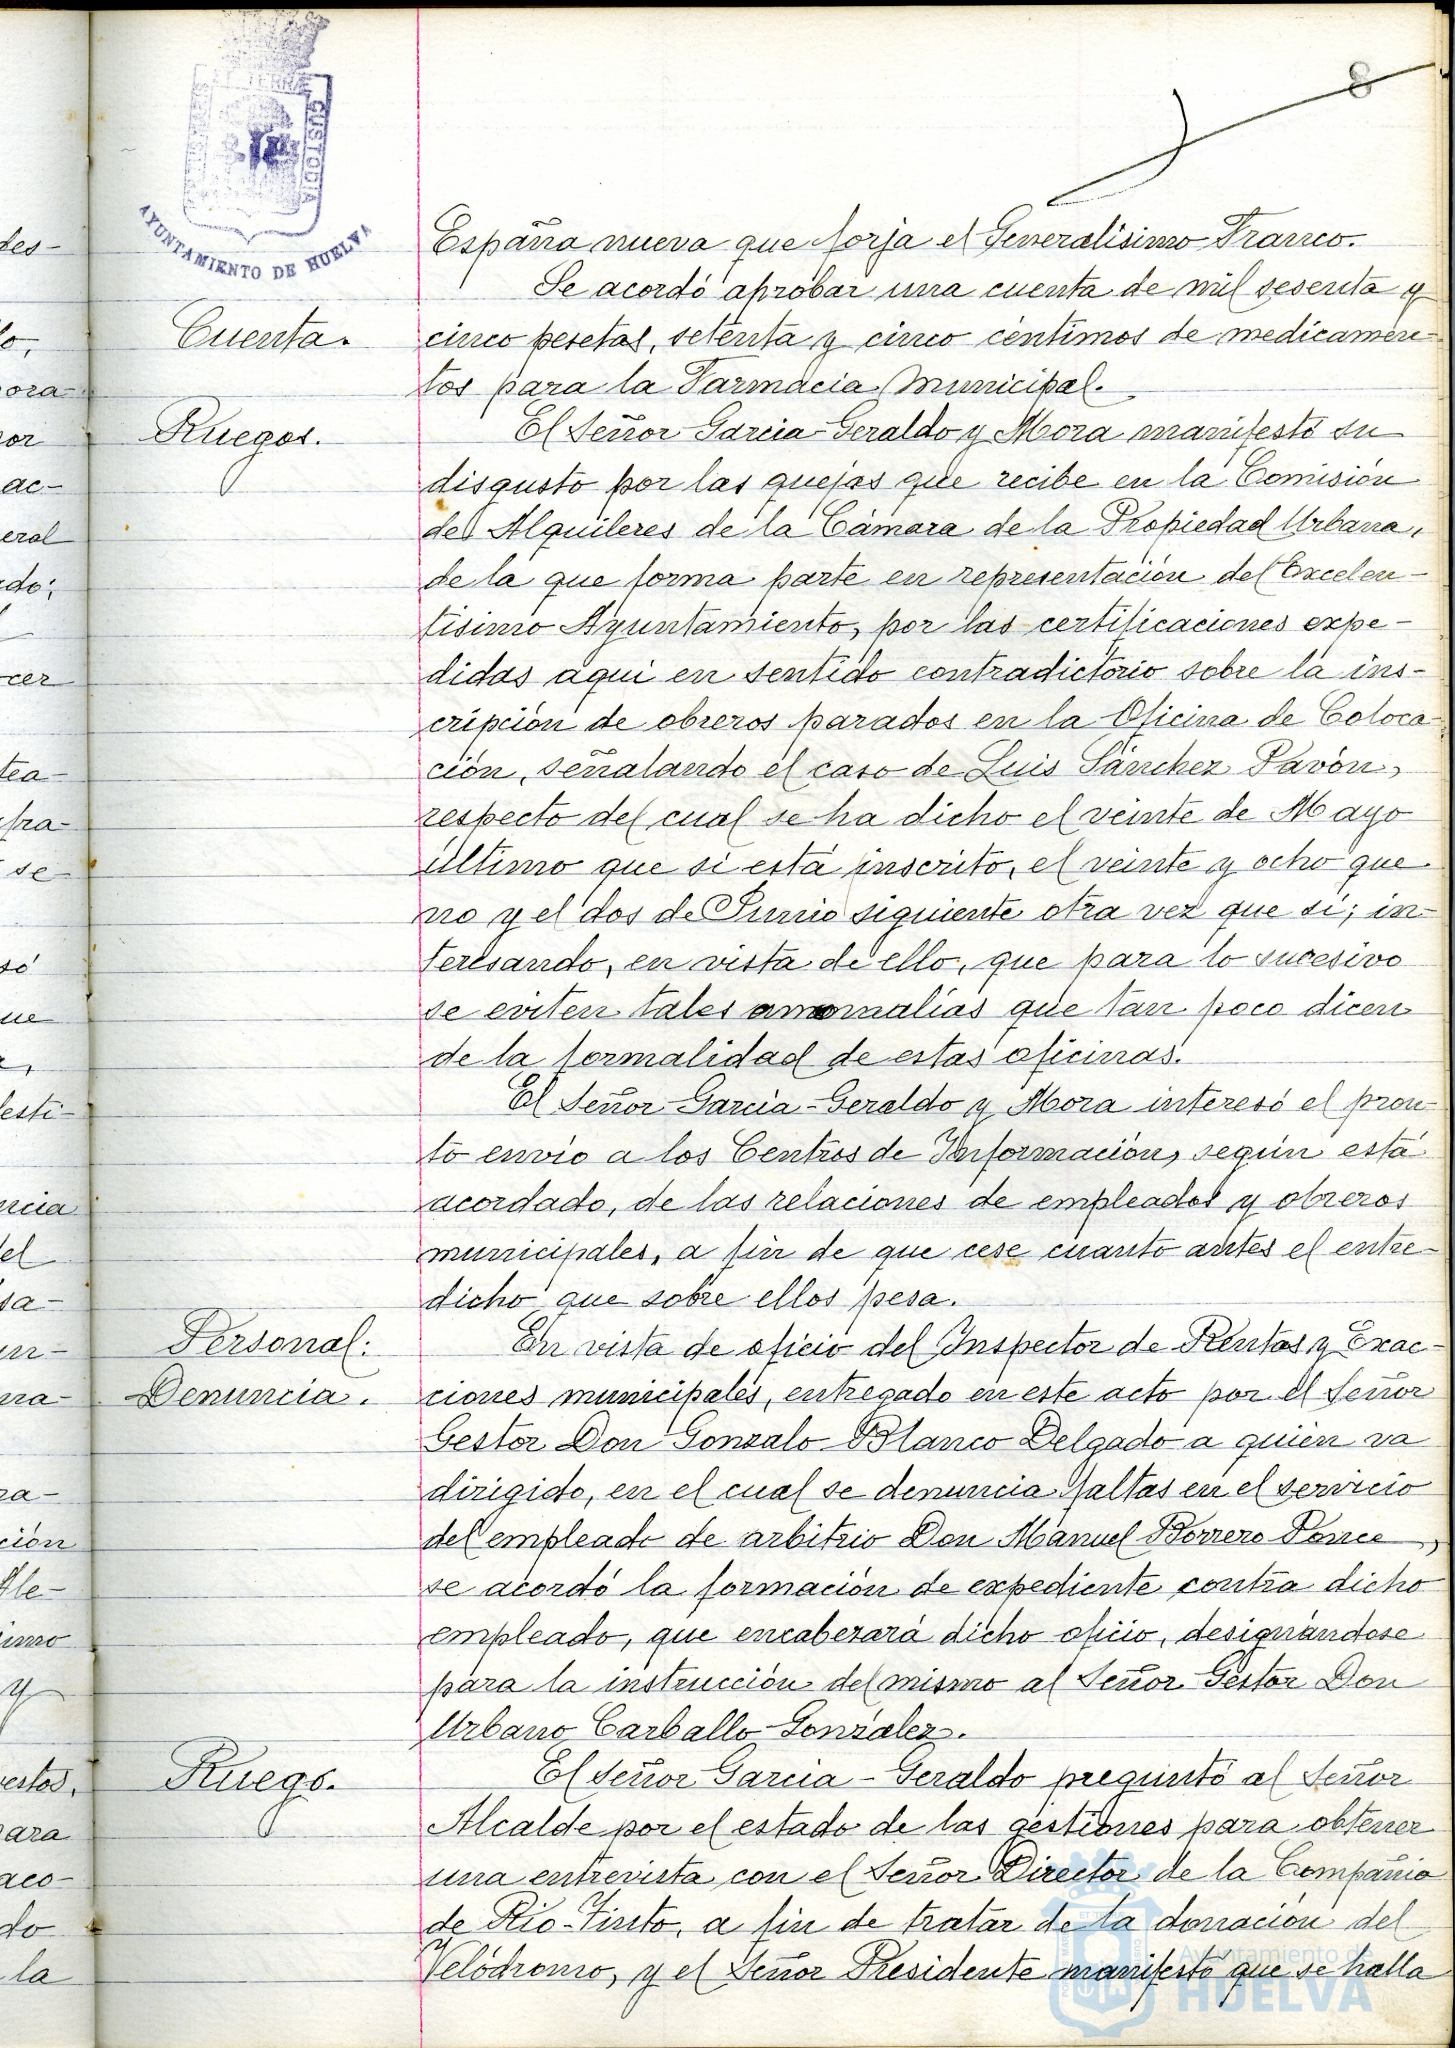 8
ET TERRAE CUSTODIA
AYUNTAMIENTO DE HUELVA
España nueva que forja el Generalisimo Franco.
Cuenta.
Se acordó aprobar una cuenta de mil sesenta y
cinco pesetas, setenta y cinco céntimos de medicamen-
tos para la Farmacia Municipal.
Ruegos.
El Señor Garcia-Geraldo y Mora manifestó su
disgusto por las quejas que recibe en la Comisión
de Alquileres de la Cámara de la Propiedad Urbana,
de la que forma parte en representación del Excelen-
tisimo Ayuntamiento, por las certificaciones expe-
didas aqui en sentido contradictorio sobre la ins-
cripción de obreros parados en la Oficina de Coloca-
ción, señalando el caso de Luis Sánchez Pavón,
respecto del cual se ha dicho el veinte de Mayo
último que si está inscrito, el veinte y ocho que
no y el dos de Junio siguiente otra vez que si; in-
teresando, en vista de ello, que para lo sucesivo
se eviten tales anomalias que tan poco dicen
de la formalidad de estas oficinas.
El Señor Garcia-Geraldo y Mora interesó el pron-
to envio a los Centros de Información, según está
acordado, de las relaciones de empleados y obreros
municipales, a fin de que cese cuanto antes el entre-
dicho que sobre ellos pesa.
Personal:
Denuncia.
En vista de oficio del Inspector de Rentas y Exac-
ciones municipales, entregado en este acto por el Señor
Gestor Don Gonzalo Blanco Delgado a quien va
dirigido, en el cual se denuncia faltas en el servicio
del empleado de arbitrio Don Manuel Borrero Ponce,
se acordó la formación de expediente contra dicho
empleado, que encabezará dicho oficio, designándose
para la instrucción del mismo al Señor Gestor Don
Urbano Carballo González.
Ruego.
El Señor Garcia-Geraldo preguntó al Señor
Alcalde por el estado de las gestiones para obtener
una entrevista con el Señor Director de la Compañia
de Rio-Tinto, a fin de tratar de la donación del
Velódromo, y el Señor Presidente manifestó que se halla
Ayuntamiento de
HUELVA